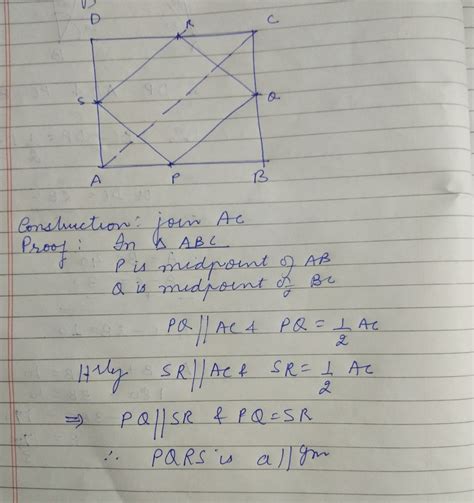 D R C
S Q
A P B
Construction: join AC
Proof: In Δ ABC
P is midpoint of AB
Q is midpoint of BC
PQ || AC & PQ = 1/2 AC
Hrly SR || AC & SR = 1/2 AC
⇒ PQ || SR & PQ = SR
∴ PQRS is a ||gm